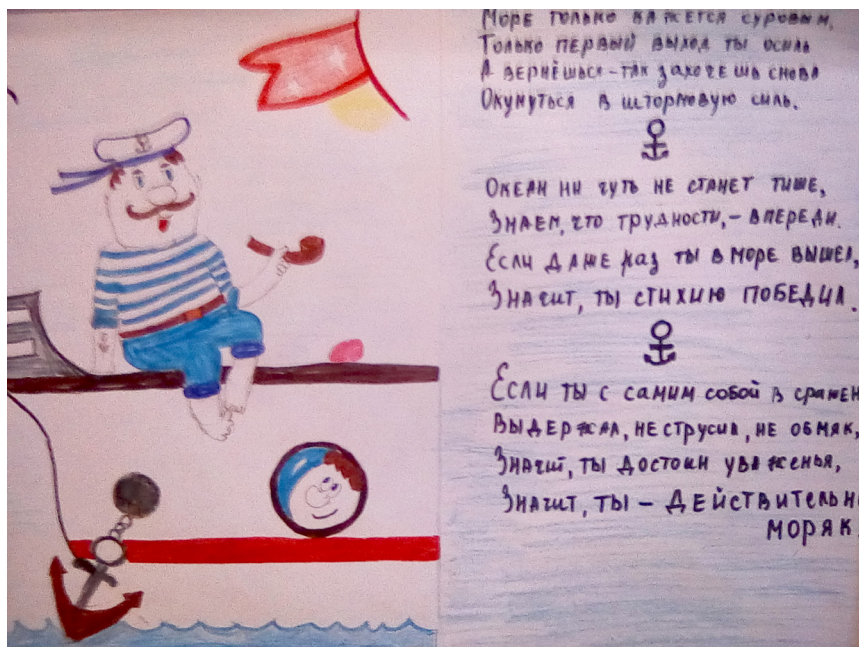 Море только кажется суровым,
Только первый выход ты осиль
А вернёшься - так захочешь снова
Окунуться в штормовую синь.
Океан ни чуть не станет тише,
Знаем, что трудности, - впереди.
Если даже раз ты в море вышел,
Значит, ты стихию победил.
Если ты с самим собой в сражен
Выдержал, не струсил, не обмяк,
Значит, ты достоин уваженья,
Значит, ты - действительн
моряк